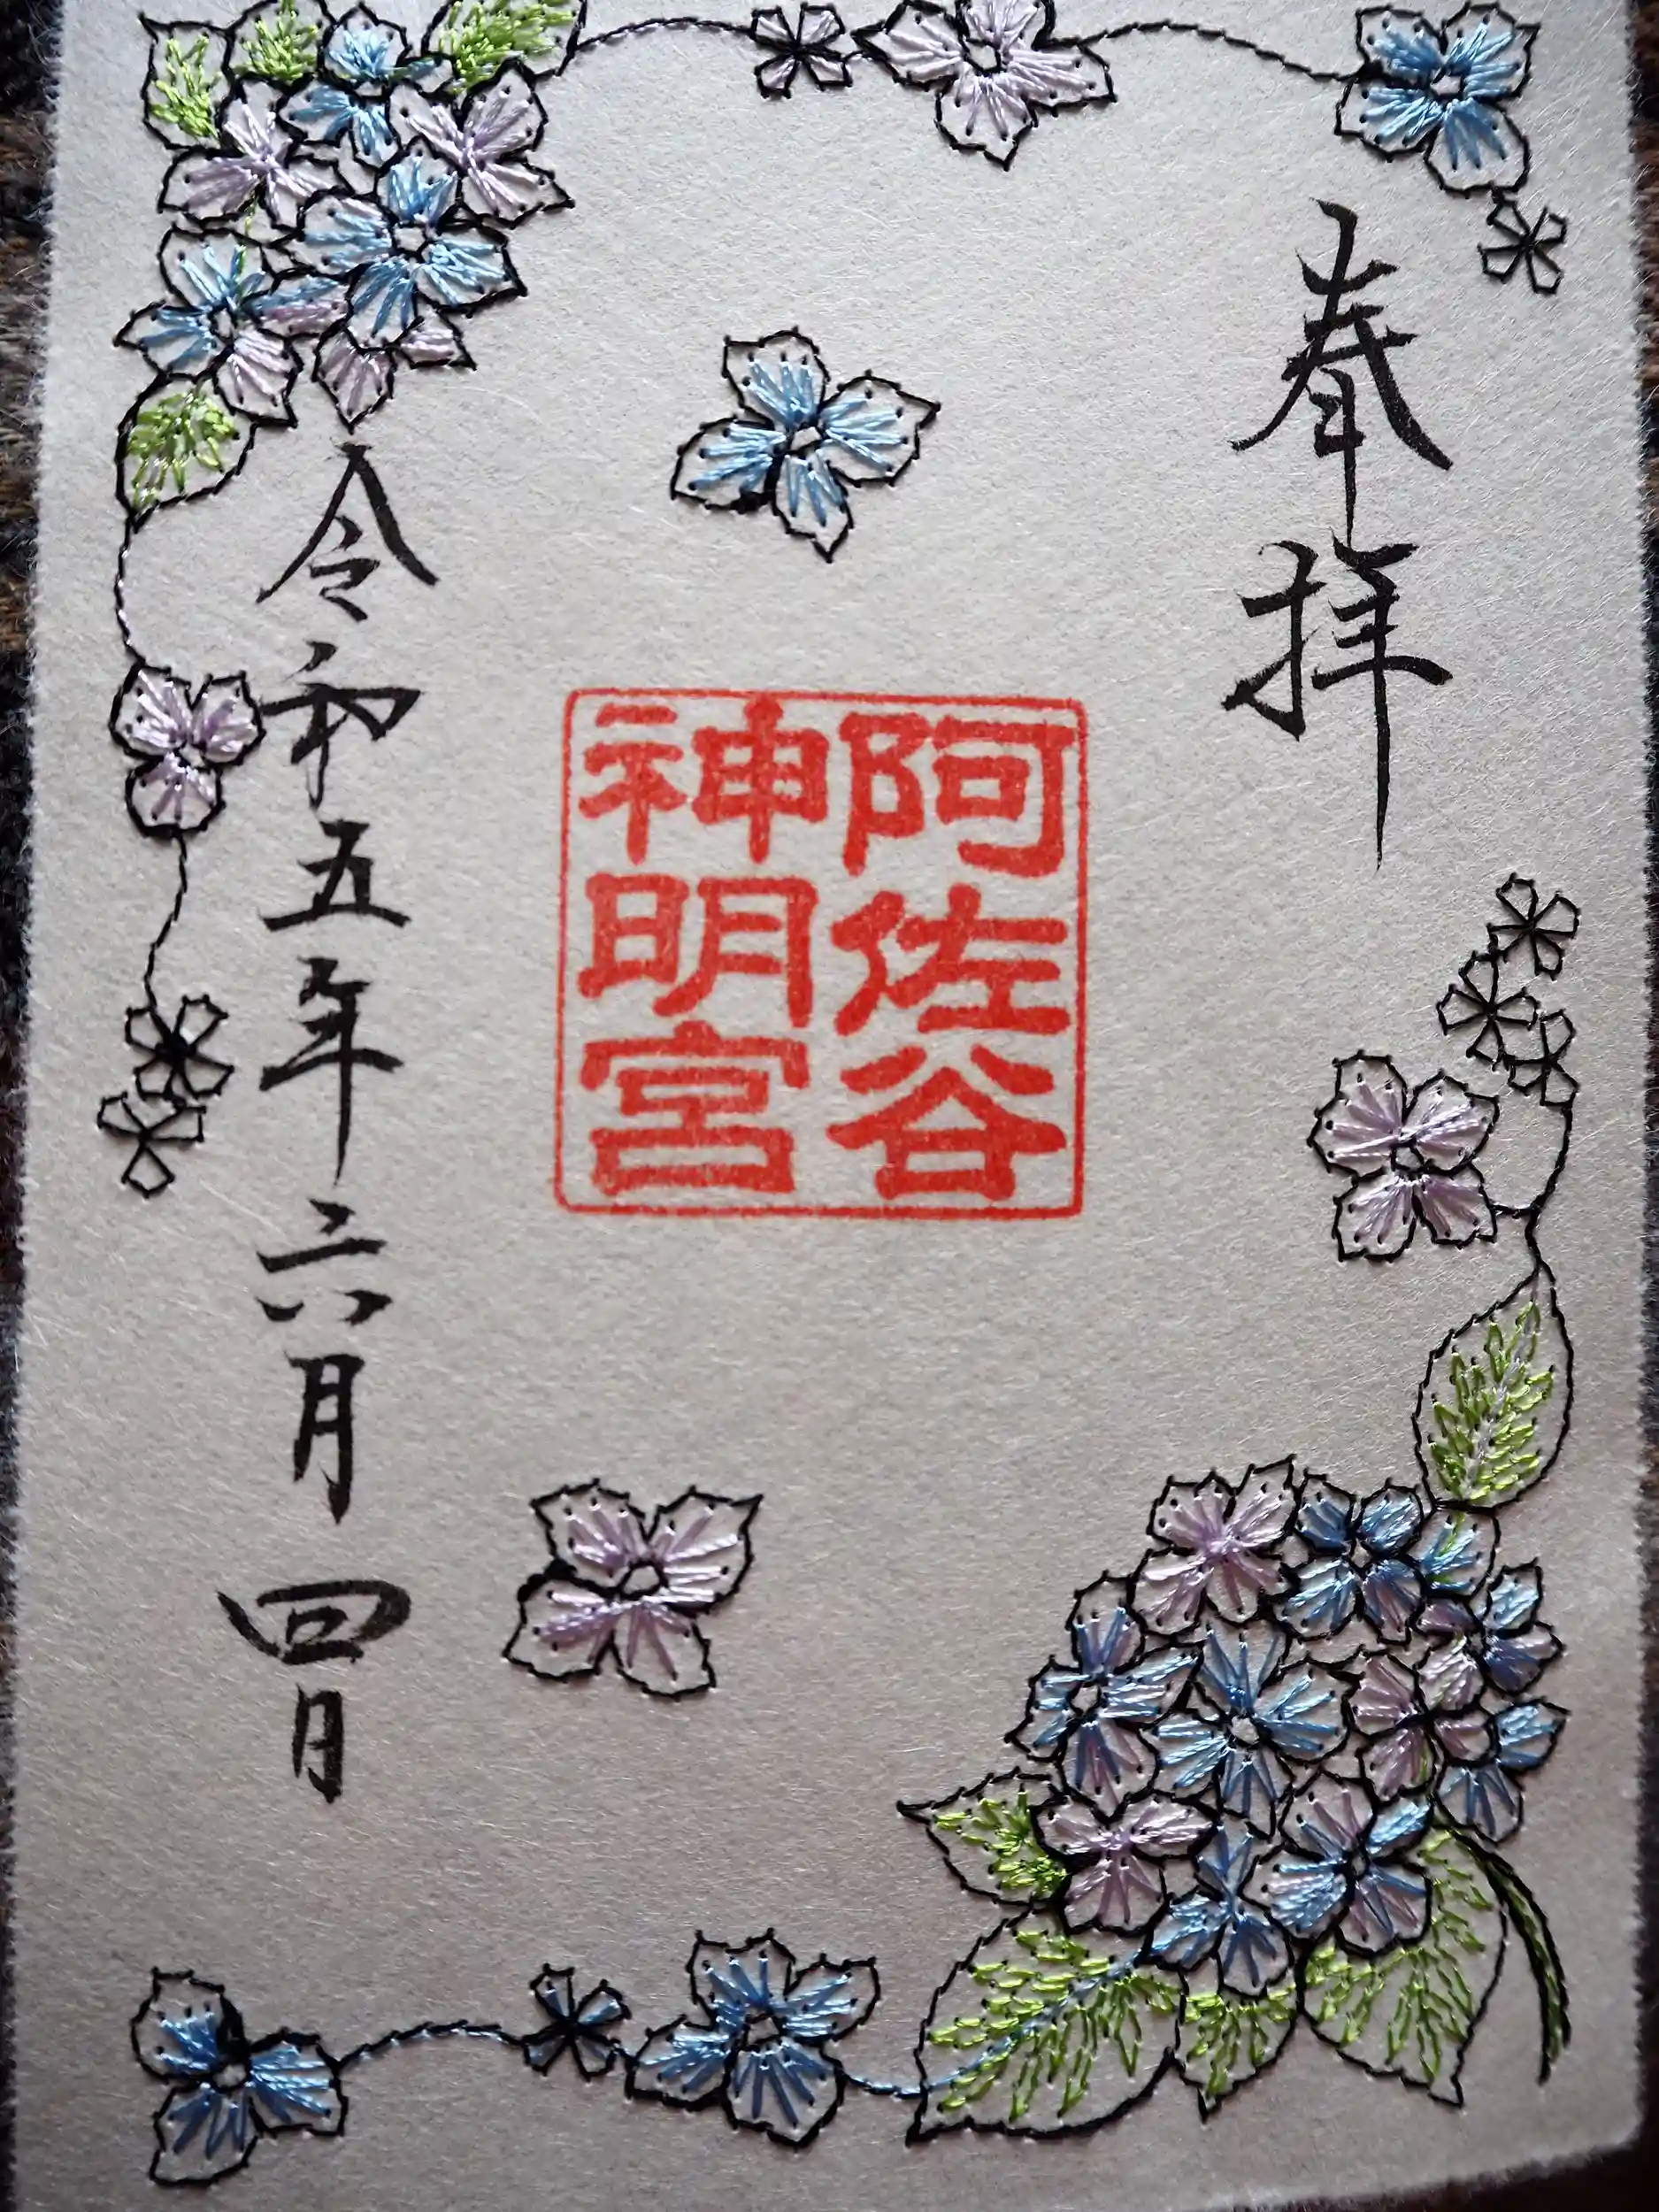 奉拝
阿佐谷
神明宮
令和五年六月四日